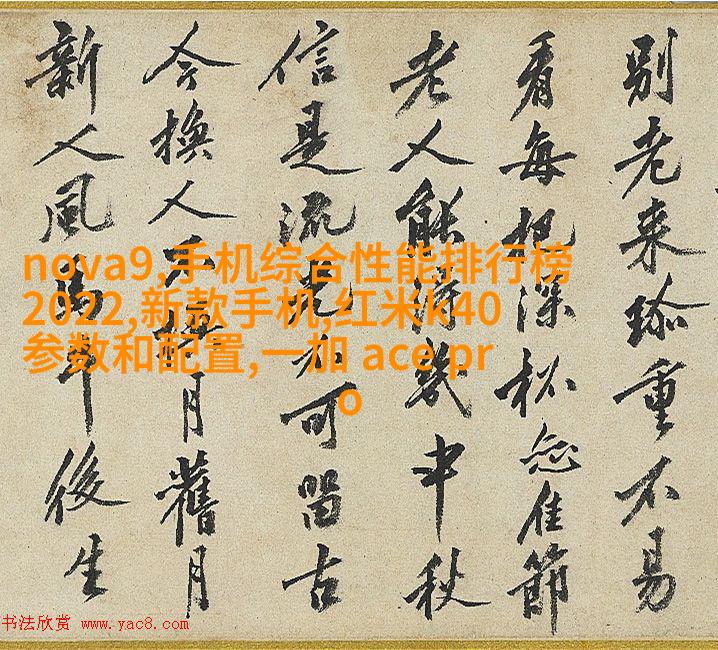 別老来珎重不易
看每把深杯恋佳節
老人能得幾中秋
信是流光不可留古
今換人不換月舊月
新人風馬牛後生
nova9,手机综合性能排行榜
2022,新款手机,红米k40
参数和配置,一加 ace pr
o
书法欣赏 www.yac8.com